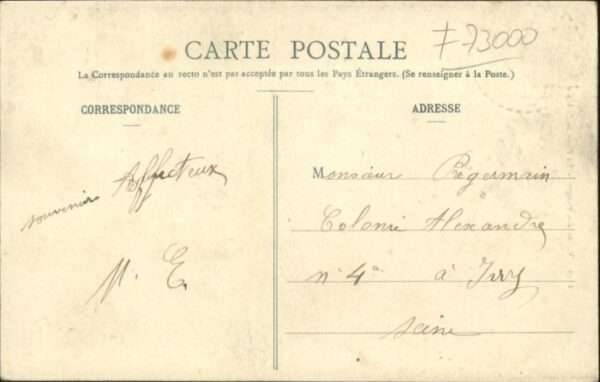 CARTE POSTALE
F 73000
La Correspondance au recto n'est pas acceptée par tous les Pays Étrangers. (Se renseigner à la Poste.)
CORRESPONDANCE
souvenirs Affectueux
M. E
ADRESSE
Monsieur Régermain
Colonie Alexandre
n° 4 à Ivry
Seine